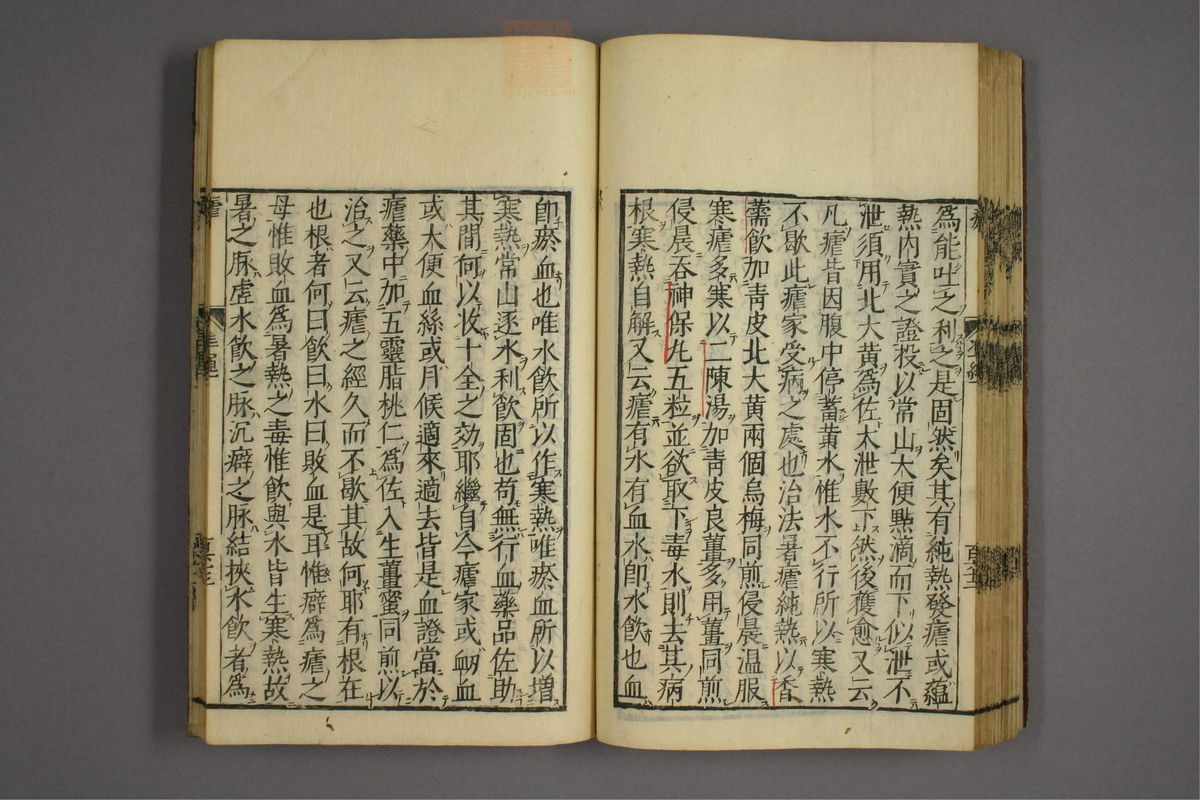 為能吐之利之是固然矣其有純熱發瘧或蘊
熱內實之證投以常山大便點滴而下似泄不
泄須用北大黃為佐大泄數下然後獲愈又云
凡瘧皆因腹中停蓄黃水惟水不行所以寒熱
不歇此瘧家受病之處也治法暑瘧純熱以香
薷飲加靑皮北大黃兩個烏梅同煎侵晨温服
寒瘧多寒以二陳湯加靑皮良薑多用薑同煎
侵晨吞神保丸五粒並欲取下毒水則去其病
根寒熱自解又云瘧有水有血水卽水飲也血
卽瘀血也唯水飲所以作寒熱唯瘀血所以增
寒熱常山逐水利飲固也苟無行血藥品佐助
其間何以收十全之効耶繼自今瘧家或衂血
或大便血絲或月候適來適去皆是血證當於
瘧藥中加五靈脂桃仁為佐入生薑蜜同煎以
治之又云瘧之經久而不歇其故何耶有根在
也根者何曰飲曰水曰敗血是耳惟癖為瘧之
母惟敗血為暑熱之毒惟飲與水皆生寒熱故
暑之脉虛水飲之脉沉癖之脉結挾水飲者為